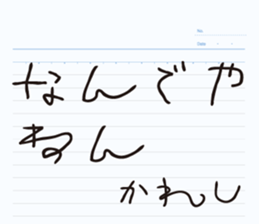 No.
Date
なんでや
ねん
かれし